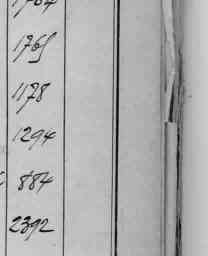 1765
1178
1294
884
2392